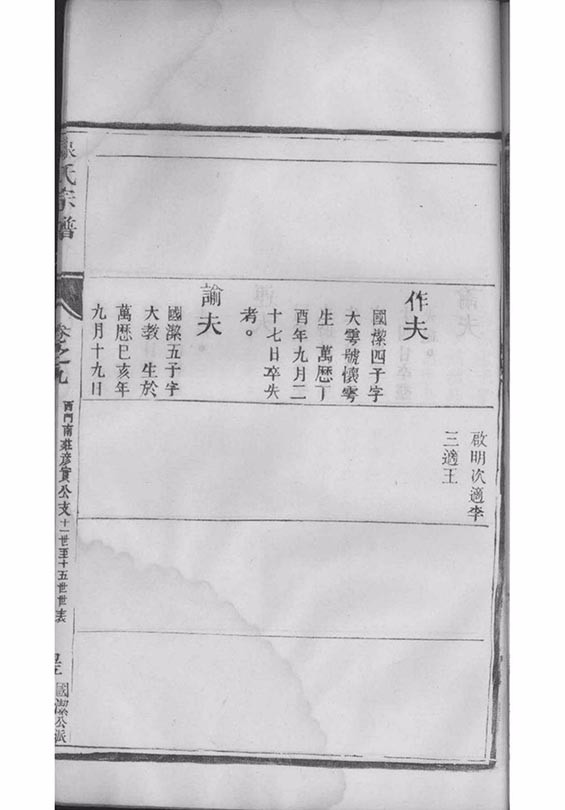 啟明次適李
三適王
作夫
國潔四子字
大雩號懷雩
生 萬歷丁
酉年九月二
十七日卒失
考。
諭夫。
國潔五子字
大教 生於
萬歷巳亥年
九月十九日
氏宗譜
卷之九
西門南莊彥實公支十一世至十五世世表
國潔公派